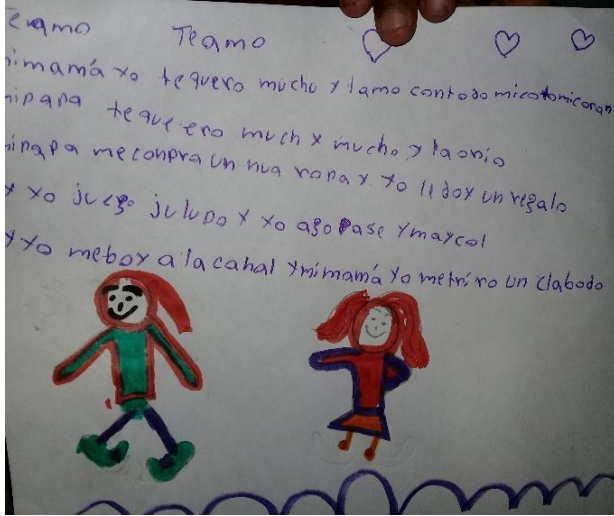 Teamo Teamo
mimamá yo tequero mucho y lamo contodo micotomicoran
mipapa tequeero much y mucho y laonio
mipapa meconpra un nua ropa y yo lidoy un regalo
y yo juego julupo y yo ago pase ymaycol
y yo meboy a la cahal ymimamá yo metriro un clabodo